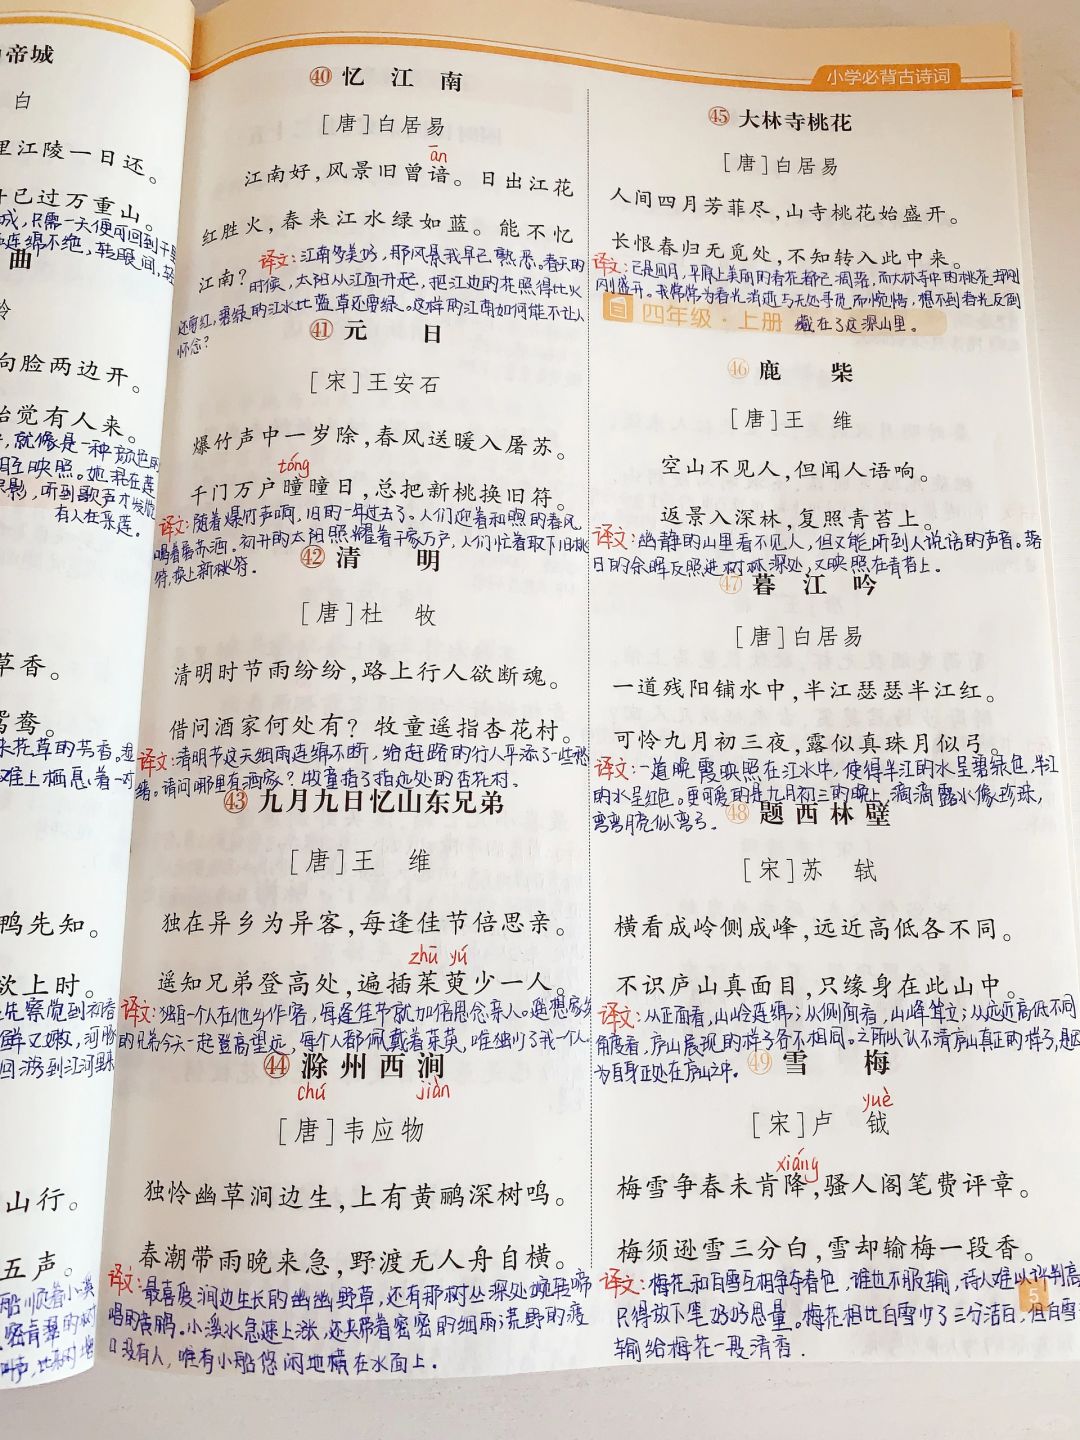 帝城
白
里江陵一日还。
已过万重山。
城,只需一天便可回到千里
连绵不绝,转眼间,轻
曲
向脸两边开。
始觉有人来。
就像是一种颜色的
相互映照。她混在莲
听到歌声才发觉
有人在采莲。
草香。
鸳鸯。
花草的芳香。
滩上栖息着一对
鸭先知。
欲上时。
先察觉到初春
鲜又嫩,河豚
回游到江河里来
山行。
五声。
小学必背古诗词
㊵ 忆江南
[唐]白居易
ān
江南好,风景旧曾谙。日出江花
红胜火,春来江水绿如蓝。能不忆
江南?
译文:江南多美好,那风景我早已熟悉。春天的
时候,太阳从江面升起,把江边的花照得比火
还要红,碧绿的江水比蓝草还要绿。这样的江南如何能不让人
怀念?
㊶ 元日
[宋]王安石
爆竹声中一岁除,春风送暖入屠苏。
tóng
千门万户曈曈日,总把新桃换旧符。
译文:随着爆竹声响,旧的一年过去了。人们迎着和煦的春风
喝着屠苏酒。初升的太阳照耀着千家万户,人们忙着取下旧桃
符,换上新桃符。
㊷ 清明
[唐]杜牧
清明时节雨纷纷,路上行人欲断魂。
借问酒家何处有?牧童遥指杏花村。
译文:清明节这天细雨连绵不断,给赶路的行人平添了一些愁
绪。请问哪里有酒家?牧童指了指远处的杏花村。
㊸ 九月九日忆山东兄弟
[唐]王维
独在异乡为异客,每逢佳节倍思亲。
zhū yú
遥知兄弟登高处,遍插茱萸少一人。
译文:独自一个人在他乡作客,每逢佳节就加倍思念亲人。遥想家乡
的兄弟今天一起登高望远,每个人都佩戴着茱萸,唯独少了我一个人。
㊹ 滁州西涧
chú jiàn
[唐]韦应物
独怜幽草涧边生,上有黄鹂深树鸣。
春潮带雨晚来急,野渡无人舟自横。
译文:最喜爱涧边生长的幽幽野草,还有那树丛深处婉转啼
唱的黄鹂。小溪水急速上涨,还夹带着密密的细雨,荒野的渡
口没有人,唯有小船悠闲地横在水面上.
㊺ 大林寺桃花
[唐]白居易
人间四月芳菲尽,山寺桃花始盛开。
长恨春归无觅处,不知转入此中来。
译文:已是四月,平原上美丽的春花都已凋落,而大林寺中的桃花却刚
刚盛开。我常常为春光消逝与无处寻觅而惋惜,想不到春光反倒
藏在了这深山里。
四年级·上册
㊻ 鹿柴
[唐]王维
空山不见人,但闻人语响。
返景入深林,复照青苔上。
译文:幽静的山里看不见人,但又能听到人说话的声音。落
日的余晖反照进树林深处,又映照在青苔上.
㊼ 暮江吟
[唐]白居易
一道残阳铺水中,半江瑟瑟半江红。
可怜九月初三夜,露似真珠月似弓。
译文:一道晚霞映照在江水中,使得半江的水呈碧绿色,半江
的水呈红色。更可爱的是九月初三的晚上,滴滴露水像珍珠,
弯弯月亮似弯弓。
㊽ 题西林壁
[宋]苏轼
横看成岭侧成峰,远近高低各不同。
不识庐山真面目,只缘身在此山中。
译文:从正面看,山岭连绵;从侧面看,山峰耸立;从远近高低不同
角度看,庐山展现的样子各不相同。之所以认不清庐山真正的样子,是因
为自身正处在庐山之中。
㊾ 雪梅
yuè
[宋]卢钺
xiáng
梅雪争春未肯降,骚人阁笔费评章。
梅须逊雪三分白,雪却输梅一段香。
译文:梅花和白雪互相争夺春色,谁也不服输,诗人难以评判高
只得放下笔好好思量。梅花相比白雪少了三分洁白,但白雪
输给梅花一段清香.
5